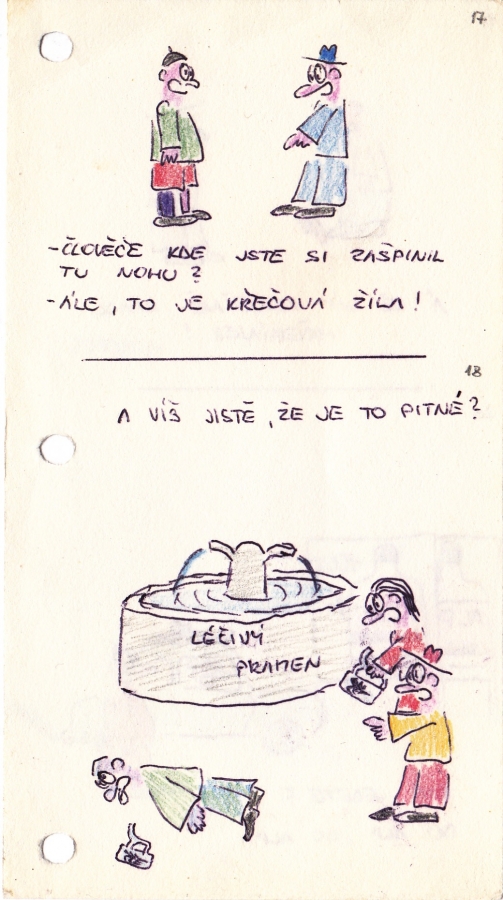 17
-ČLOVĚČE KDE JSTE SI ZAŠPINIL
TU NOHU?
-ÁLE, TO JE KŘEČOVÁ ŽÍLA!
18
A VÍŠ JISTĚ, ŽE JE TO PITNÉ?
LÉČIVÝ
PRAMEN